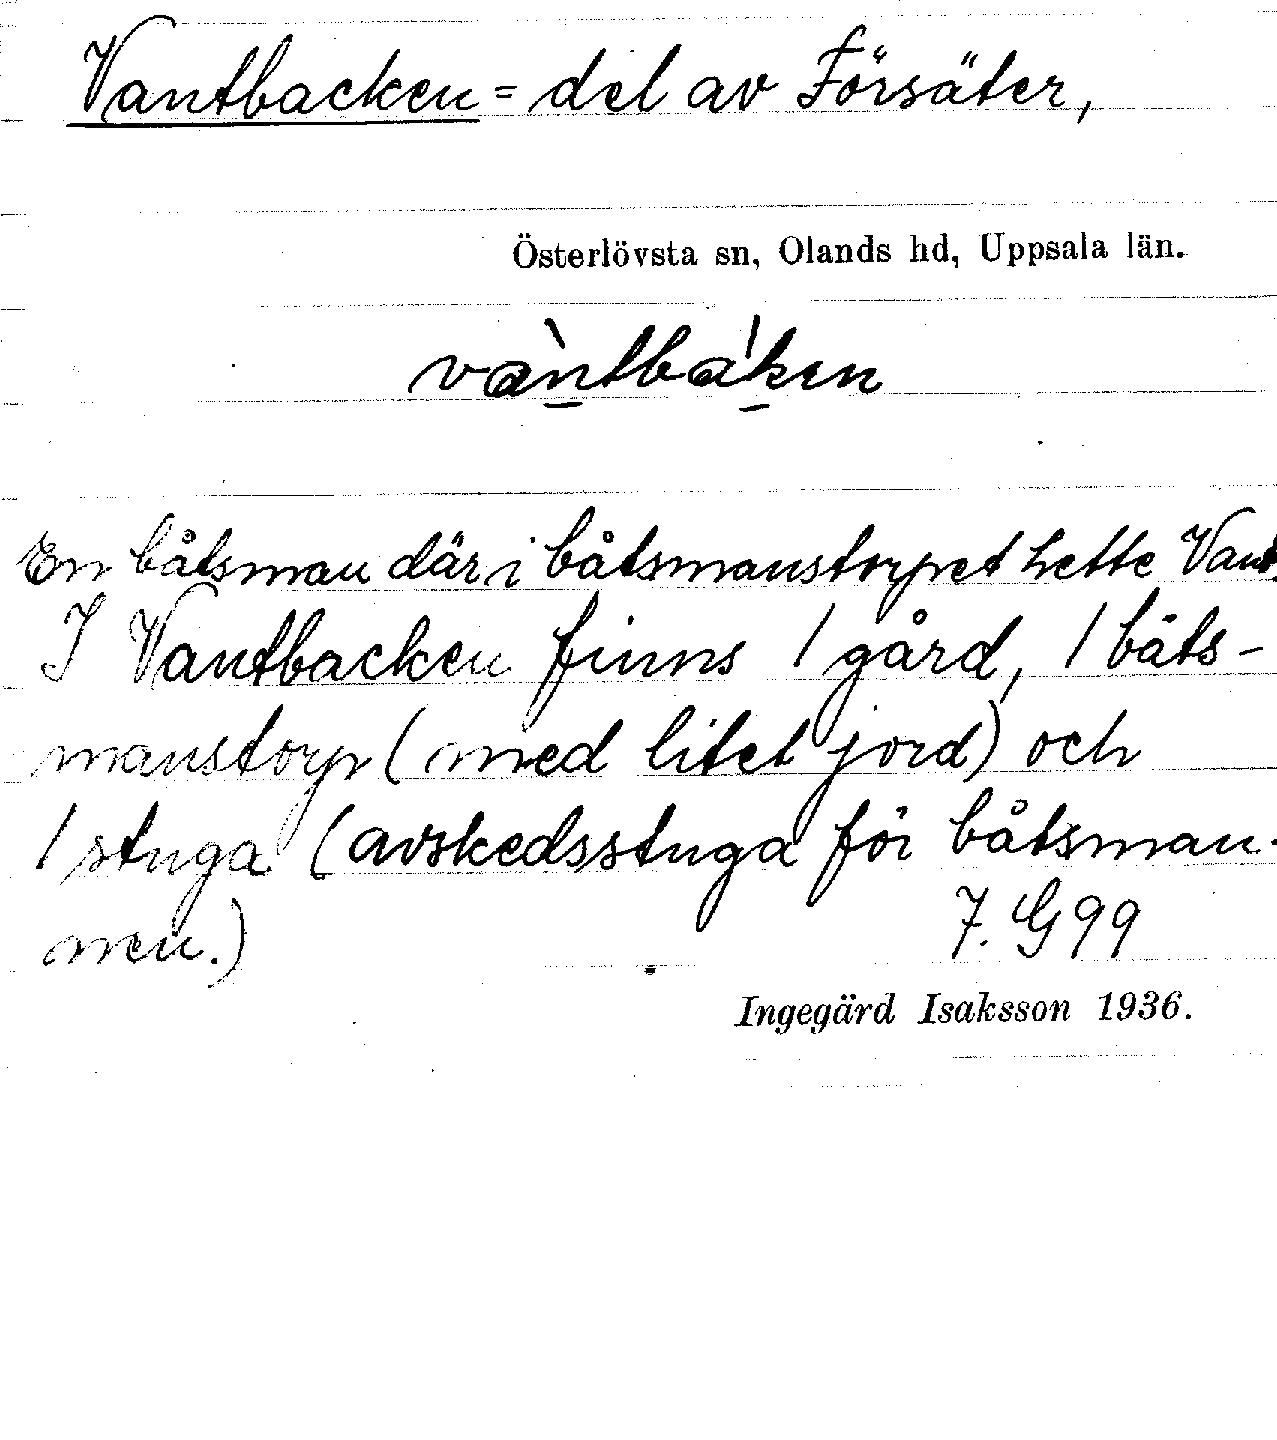 Vantbacken = del av Försäter,
Österlövsta sn, Olands hd, Uppsala län.
và̱ntbá̱ken
En båtsman där i båtsmanstorpet hette Vant.
I Vantbacken finns 1 gård, 1 båts-
manstorp (med litet jord) och
1 stuga (avskedsstuga för båtsman-
nen.)
7. G 99
Ingegärd Isaksson 1936.